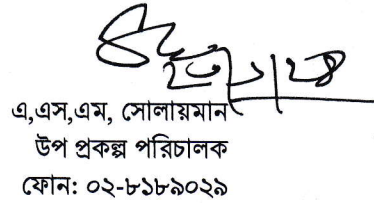 এ,এস,এম, সোলায়মান
উপ প্রকল্প পরিচালক
ফোন: ০২-৮১৮৯০২৯